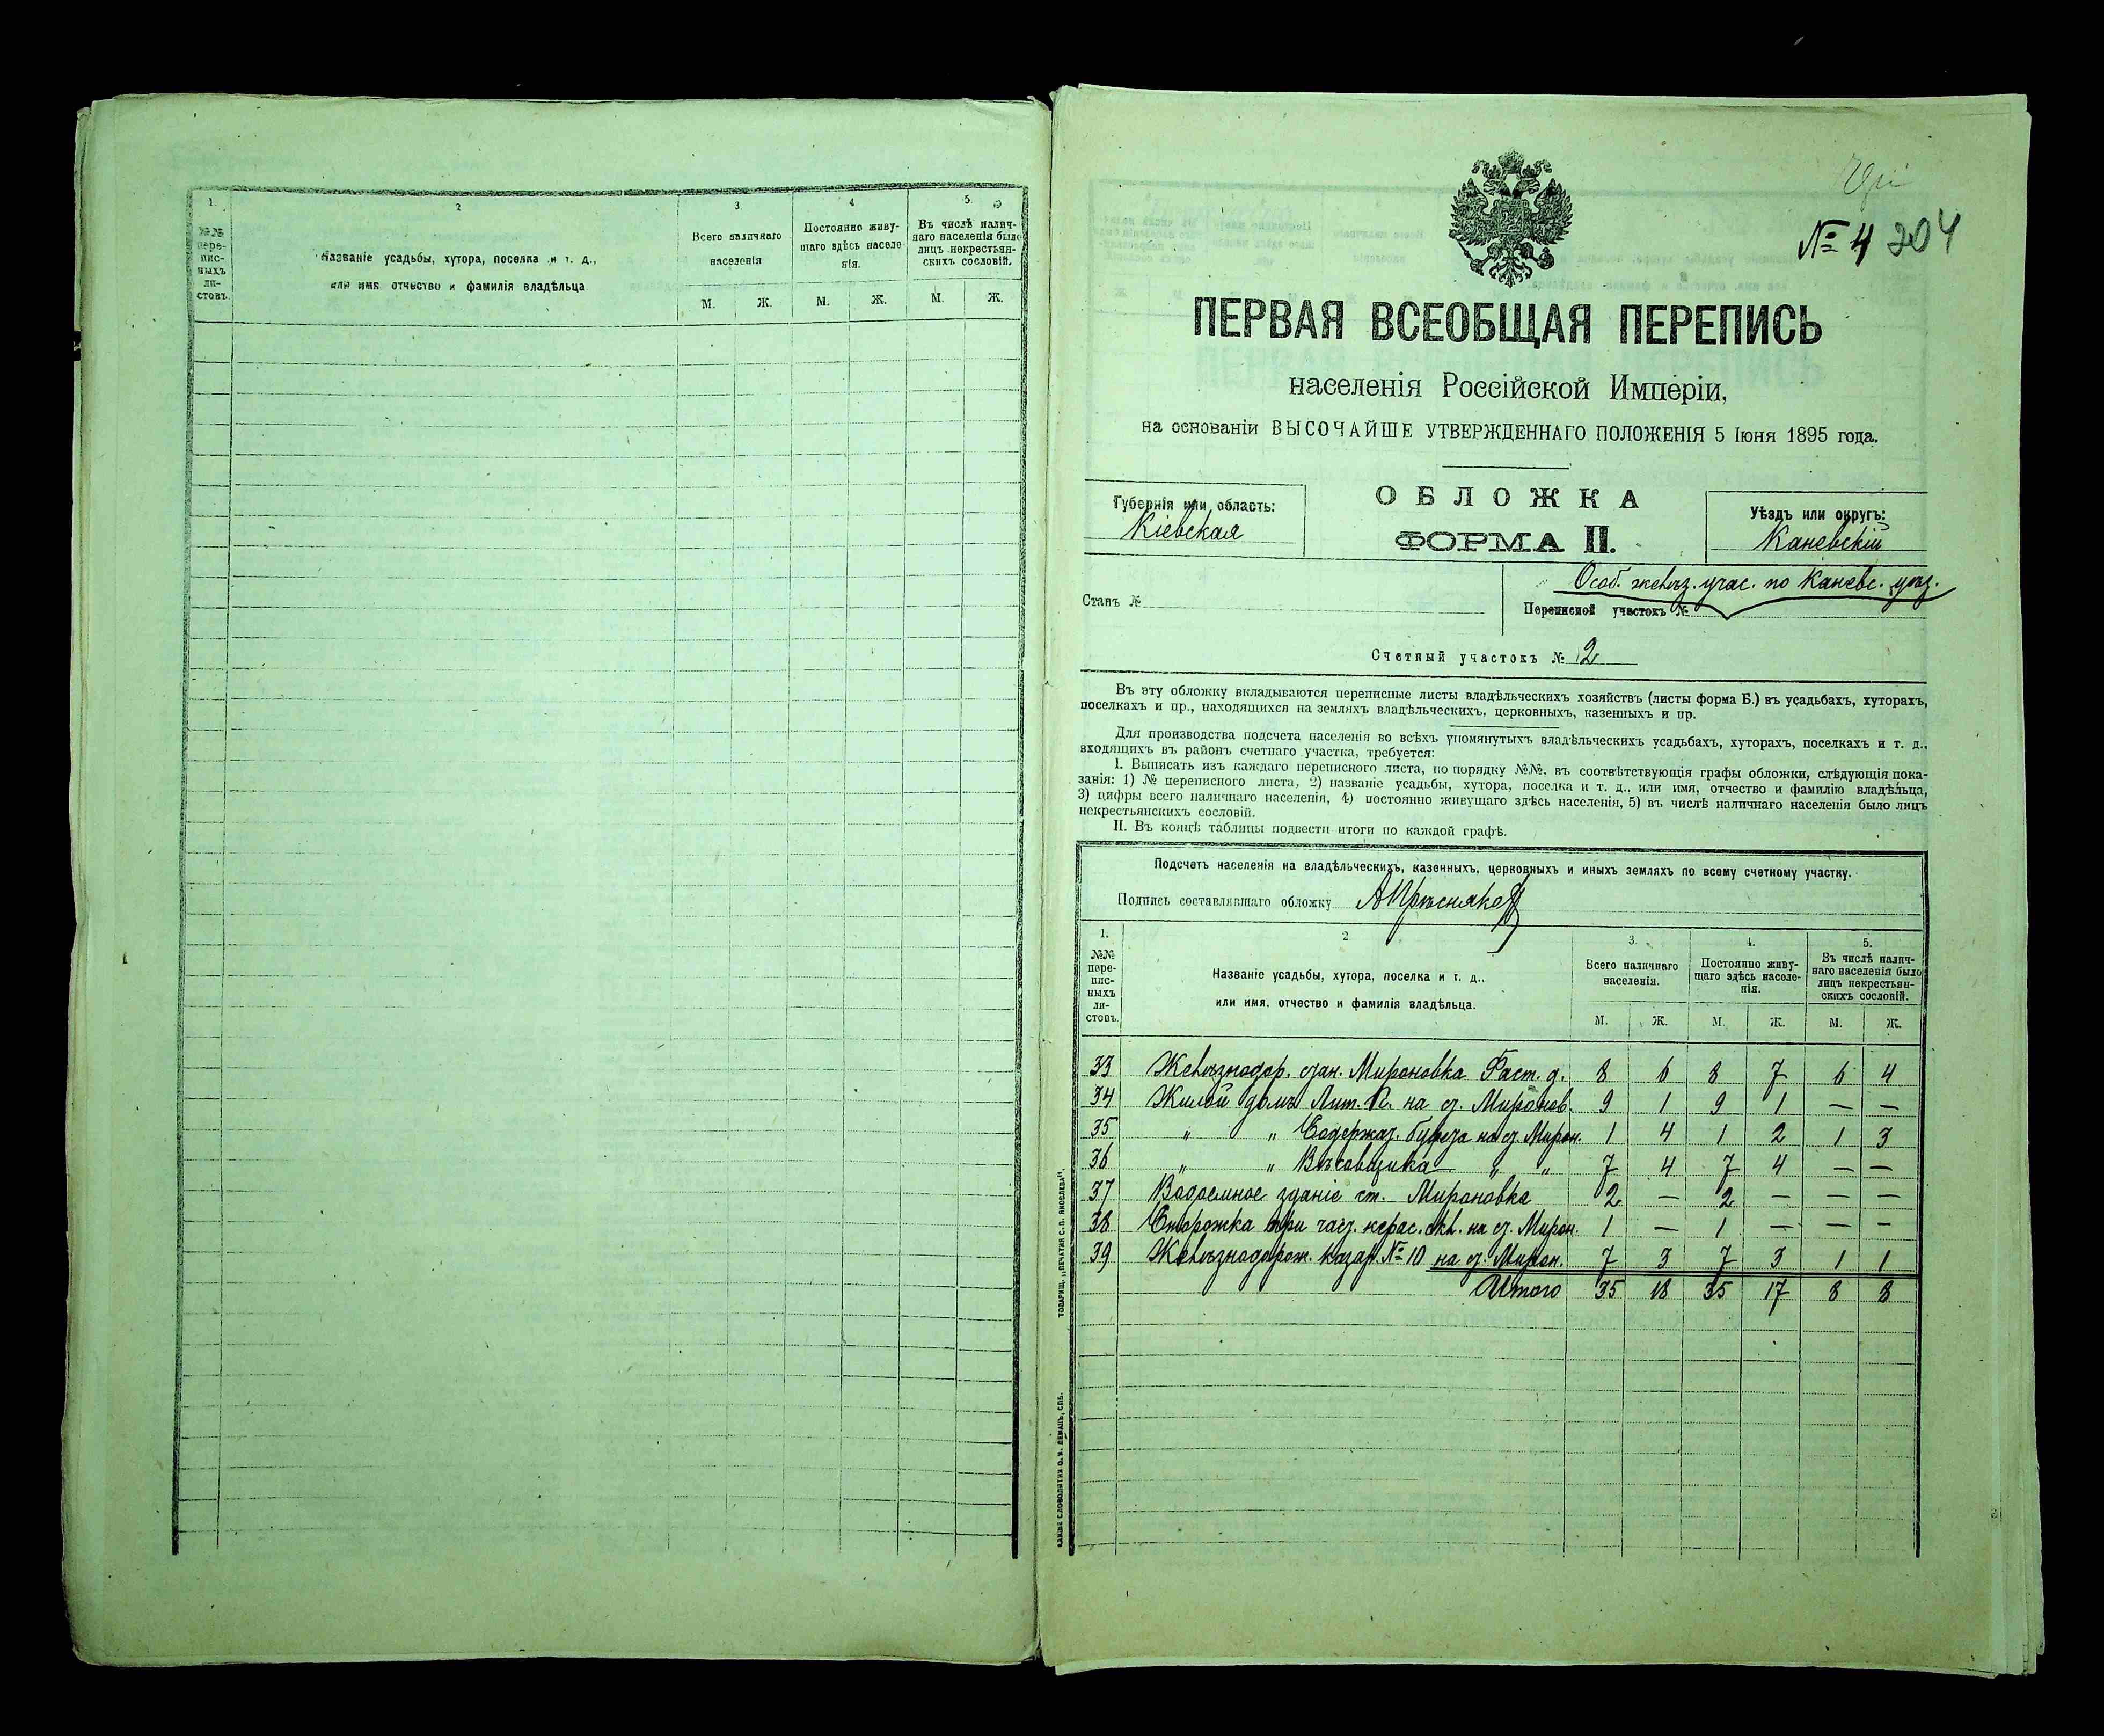 1.
№№ пере-писныхъ ли-стовъ.
2
Названіе усадьбы, хутора, поселка и т. д.,
или имя отчество и фамилія владѣльца
3
Всего наличнаго
населенія
М. Ж.
4
Постоянно живу-
щаго здѣсь населе
нія.
М. Ж.
5.
Въ числѣ налич-
наго населенія было
лицъ некрестьян-
скихъ сословій.
М. Ж.
№ 4 204
ПЕРВАЯ ВСЕОБЩАЯ ПЕРЕПИСЬ
населенія Россійской Имперіи,
на основаніи ВЫСОЧАЙШЕ УТВЕРЖДЕННАГО ПОЛОЖЕНІЯ 5 Іюня 1895 года.
Губернія или область:
Кіевская
ОБЛОЖКА
ФОРМА II.
Уѣздъ или округъ:
Каневскій
Станъ №
Особ. желѣз. учас. по Каневс. уѣз.
Переписной участокъ №
Счетный участокъ № 2
Въ эту обложку вкладываются переписные листы владѣльческихъ хозяйствъ (листы форма Б.) въ усадьбахъ, хуторахъ,
поселкахъ и пр., находящихся на земляхъ владѣльческихъ, церковныхъ, казенныхъ и пр.
Для производства подсчета населенія во всѣхъ упомянутыхъ владѣльческихъ усадьбахъ, хуторахъ, поселкахъ и т. д.,
входящихъ въ районъ счетнаго участка, требуется:
I. Выписать изъ каждаго переписного листа, по порядку №№, въ соотвѣтствующія графы обложки, слѣдующія пока-
занія: 1) № переписного листа, 2) названіе усадьбы, хутора, поселка и т. д., или имя, отчество и фамилію владѣльца,
3) цифры всего наличнаго населенія, 4) постоянно живущаго здѣсь населенія, 5) въ числѣ наличнаго населенія было лицъ
некрестьянскихъ сословій.
II. Въ концѣ таблицы подвести итоги по каждой графѣ.
Подсчетъ населенія на владѣльческихъ, казенныхъ, церковныхъ и иныхъ земляхъ по всему счетному участку.
Подпись составлявшаго обложку АПрѣсняковъ
1.
№№
пере-
пис-
ныхъ
ли-
стовъ.
2
Названіе усадьбы, хутора, поселка и т. д.,
или имя, отчество и фамилія владѣльца.
3.
Всего наличнаго
населенія.
М. Ж.
4.
Постоянно живу-
щаго здѣсь населе-
нія.
М. Ж.
5.
Въ числѣ налич-
наго населенія было
лицъ некрестьян-
скихъ сословій.
М. Ж.
33 Желѣзнодор. стан. Мироновка Паст. д. 8 6 8 7 6 4
34 Жилой домъ Лит. П. на ст. Миронов. 9 1 9 1 — —
35 " " Содержат. буфета на ст. Мирон. 1 4 1 2 1 3
36 " " Вѣсовщика " " 7 4 7 4 — —
37 Водоемное зданіе ст. Мироновка 2 — 2 — — —
38 Сторожка при част. керас. скл. на ст. Мирон. 1 — 1 — — —
39 Желѣзнодорож. казар. № 10 на ст. Мирон. 7 3 7 3 1 1
Итого 35 18 35 17 8 8
ТОВАРИЩ. „ПЕЧАТНЯ С. П. ЯКОВЛЕВА".
КЛИШЕ СЛОВОЛИТНИ О. И. ЛЕМАНЪ, СПБ.